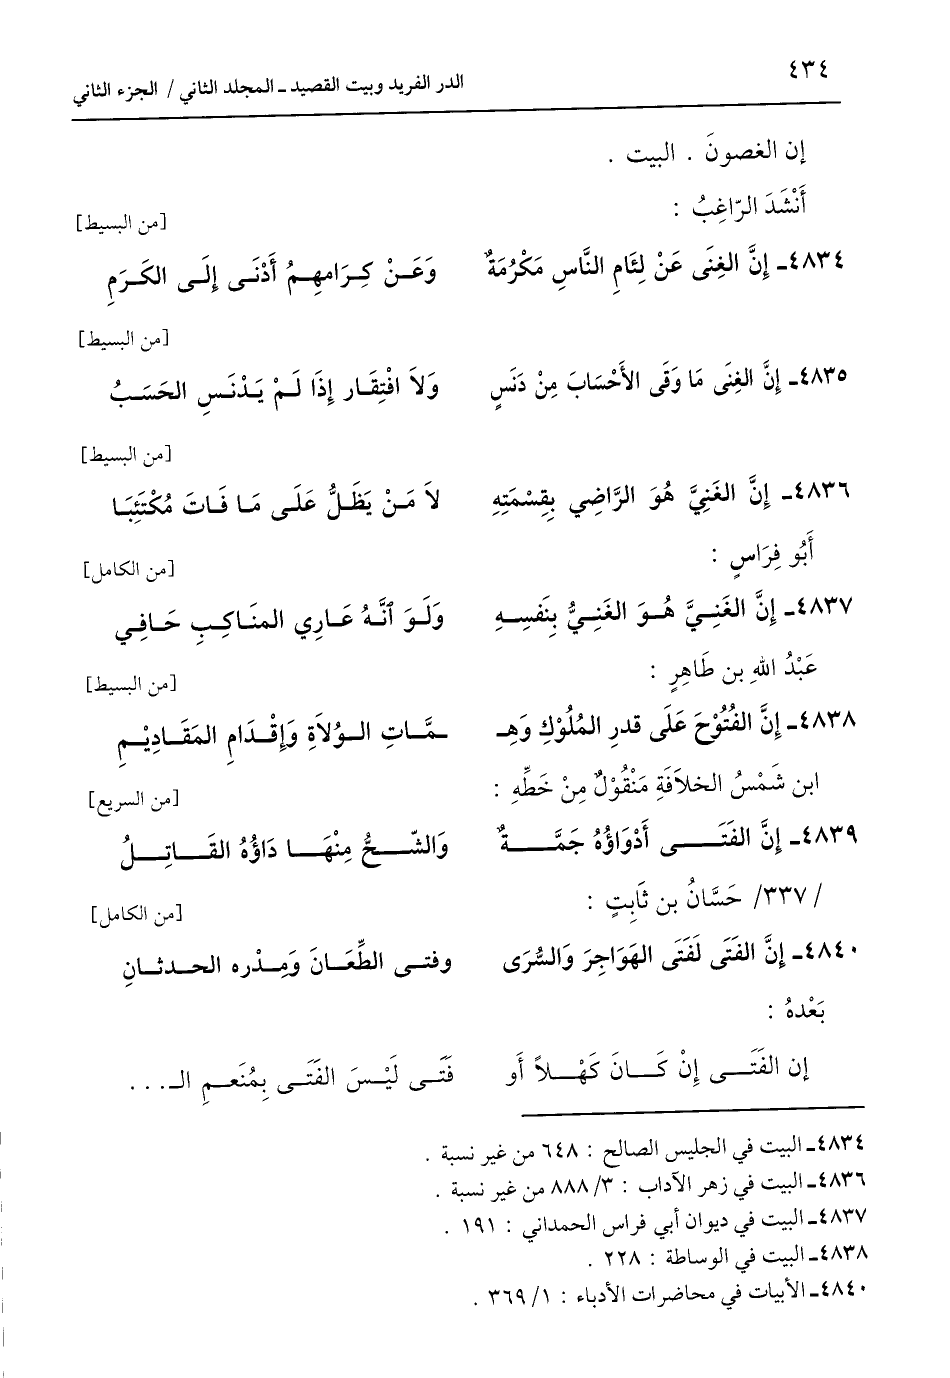 ٤٣٤
الدر الفريد وبيت القصيد ـ المجلد الثاني / الجزء الثاني
إن الغصونَ . البيت .
أَنْشَدَ الرّاغِبُ :
[من البسيط]
٤٨٣٤ـ إِنَّ الغِنَى عَنْ لِئَامِ النَّاسِ مَكْرُمَةٌ وَعَـنْ كِـرَامِهِـمُ أَدْنَـى إِلَـى الكَـرَمِ
[من البسيط]
٤٨٣٥ـ إِنَّ الغِنَى مَا وَقَى الأَحْسَابَ مِنْ دَنَسٍ وَلاَ افْتِقَـار إِذَا لَـمْ يَـدْنَـسِ الحَسَـبُ
[من البسيط]
٤٨٣٦ـ إِنَّ الغَنِيَّ هُوَ الرَّاضِي بِقِسْمَتِهِ لاَ مَـنْ يَظَـلُّ عَلَـى مَـا فَـاتَ مُكْتَئِبَـا
أَبُو فِرَاسٍ :
[من الكامل]
٤٨٣٧ـ إِنَّ الغَنِـيَّ هُـوَ الغَنِـيُّ بِنَفسِـهِ وَلَـوَ ٱنَّـهُ عَـارِي المنَـاكِـبِ حَـافِـي
عَبْدُ اللهِ بن طَاهِرٍ :
[من البسيط]
٤٨٣٨ـ إِنَّ الفُتُوْحَ عَلَى قدرِ المُلُوْكِ وَهِـ ـمَّـاتِ الـوُلاَةِ وَإِقْـدَامِ المَقَـادِيْـمِ
ابن شَمْسُ الخلاَفَةِ مَنْقُوْلٌ مِنْ خَطِّهِ :
[من السريع]
٤٨٣٩ـ إِنَّ الفَتَـــى أَدْوَاؤُهُ جَمَّـــةٌ وَالشّـــحُّ مِنْهَـــا دَاؤُهُ القَـــاتِـــلُ
/ ٣٣٧/ حَسَّانُ بن ثَابِتٍ :
[من الكامل]
٤٨٤٠ـ إِنَّ الفَتَى لَفَتَى الهَوَاجِرَ وَالسُّرَى وفتـى الطِّعَـانَ وَمِـدْره الحـدثـانِ
بَعْدهُ :
إن الفَتَـــى إِنْ كَـــانَ كَهْـــلاً أَو فَتَـى لَيْـسَ الفَتَـى بِمُنَعـمِ الـ. . .
٤٨٣٤ـ البيت في الجليس الصالح : ٦٤٨ من غير نسبة .
٤٨٣٦ـ البيت في زهر الآداب : ٣/ ٨٨٨ من غير نسبة .
٤٨٣٧ـ البيت في ديوان أبي فراس الحمداني : ١٩١ .
٤٨٣٨ـ البيت في الوساطة : ٢٢٨ .
٤٨٤٠ـ الأبيات في محاضرات الأدباء : ١/ ٣٦٩ .